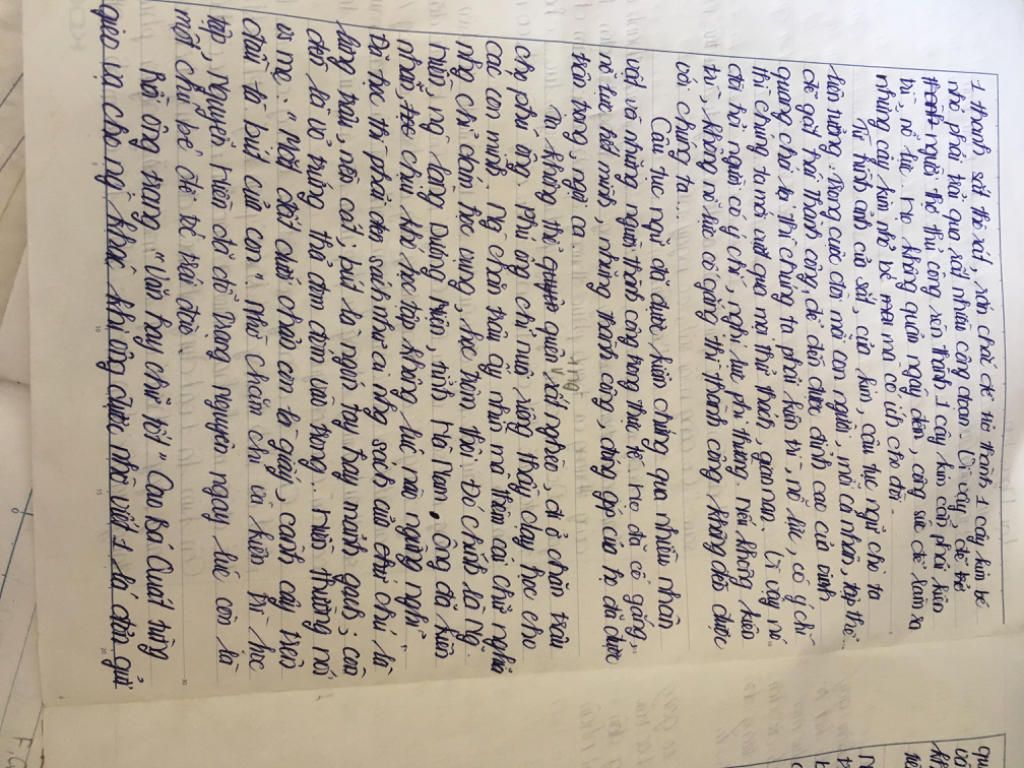 1 thanh sắt thô xơ, xấu chai để trở thành 1 cây kim bé
nhỏ phải trải qua rất nhiều công đoạn. Vì vậy, để
người thợ thủ công rèn thành 1 cây kim cần phải kiên
trì, nỗ lực. Họ không quản ngày đêm, công sức để làm ra
những cây kim nhỏ bé mà có ích cho đời.
Từ hình ảnh của sắt, của kim, câu tục ngữ cho ta
liên tưởng. Trong cuộc đời mỗi con người, mỗi cá nhân, tập thể.
Để gặt hái thành công, để đến được đỉnh cao của vinh
quang chói lọi thì chúng ta phải kiên trì, nỗ lực, có ý chí
thì chúng ta mới vượt qua mọi thử thách, gian nan. Vì vậy nó
đòi hỏi người có ý chí, nghị lực phi thường nếu không kiên
trì, không nỗ lực cố gắng thì thành công không đến được
với chúng ta...
Câu tục ngữ đã được kiểm chứng qua nhiều nhân
vật và những người thành công trong thực tế. Họ đã cố gắng,
nỗ lực hết mình, những thành công, đóng góp của họ đã được
trân trọng, ngợi ca
xất nghèo, cả ở chăn trâu
cho phú ông. Phú ông chỉ nuôi riêng thầy dạy học cho
các con mình. Ng chăn trâu ấy nhìn mà thèm cái chữ nghĩa
nhg chỉ dám học vụng, học hỏi thôi. Đó chính là ng
Hiền ng làng Dương Hiền, tỉnh Hà Nam. Ông đã kiên
nhẫn, chịu khó học tập không lúc nào ngừng nghỉ.
Đã học thì phải đèn sách như ai nhg sách của chú là
lưng trâu, nền cát; bút là ngón tay hay mảnh gạch; còn
đèn là vỏ trứng thả đom đóm vào trong. Hiền thường nói
vs mẹ: "Mặt đất dưới chân con là giấy, cành cây trên
chữ là bút của con". Nhờ chăm chỉ và kiên trì học
tập, Nguyễn Hiền đã đỗ Trạng nguyên ngay lúc còn là
một chú bé để tóc trái đào
Rồi ông trạng "Văn hay chữ tốt" Cao Bá Quát từng
giao văn cho ng khác khi ông được nhờ viết 1 lá đơn gửi